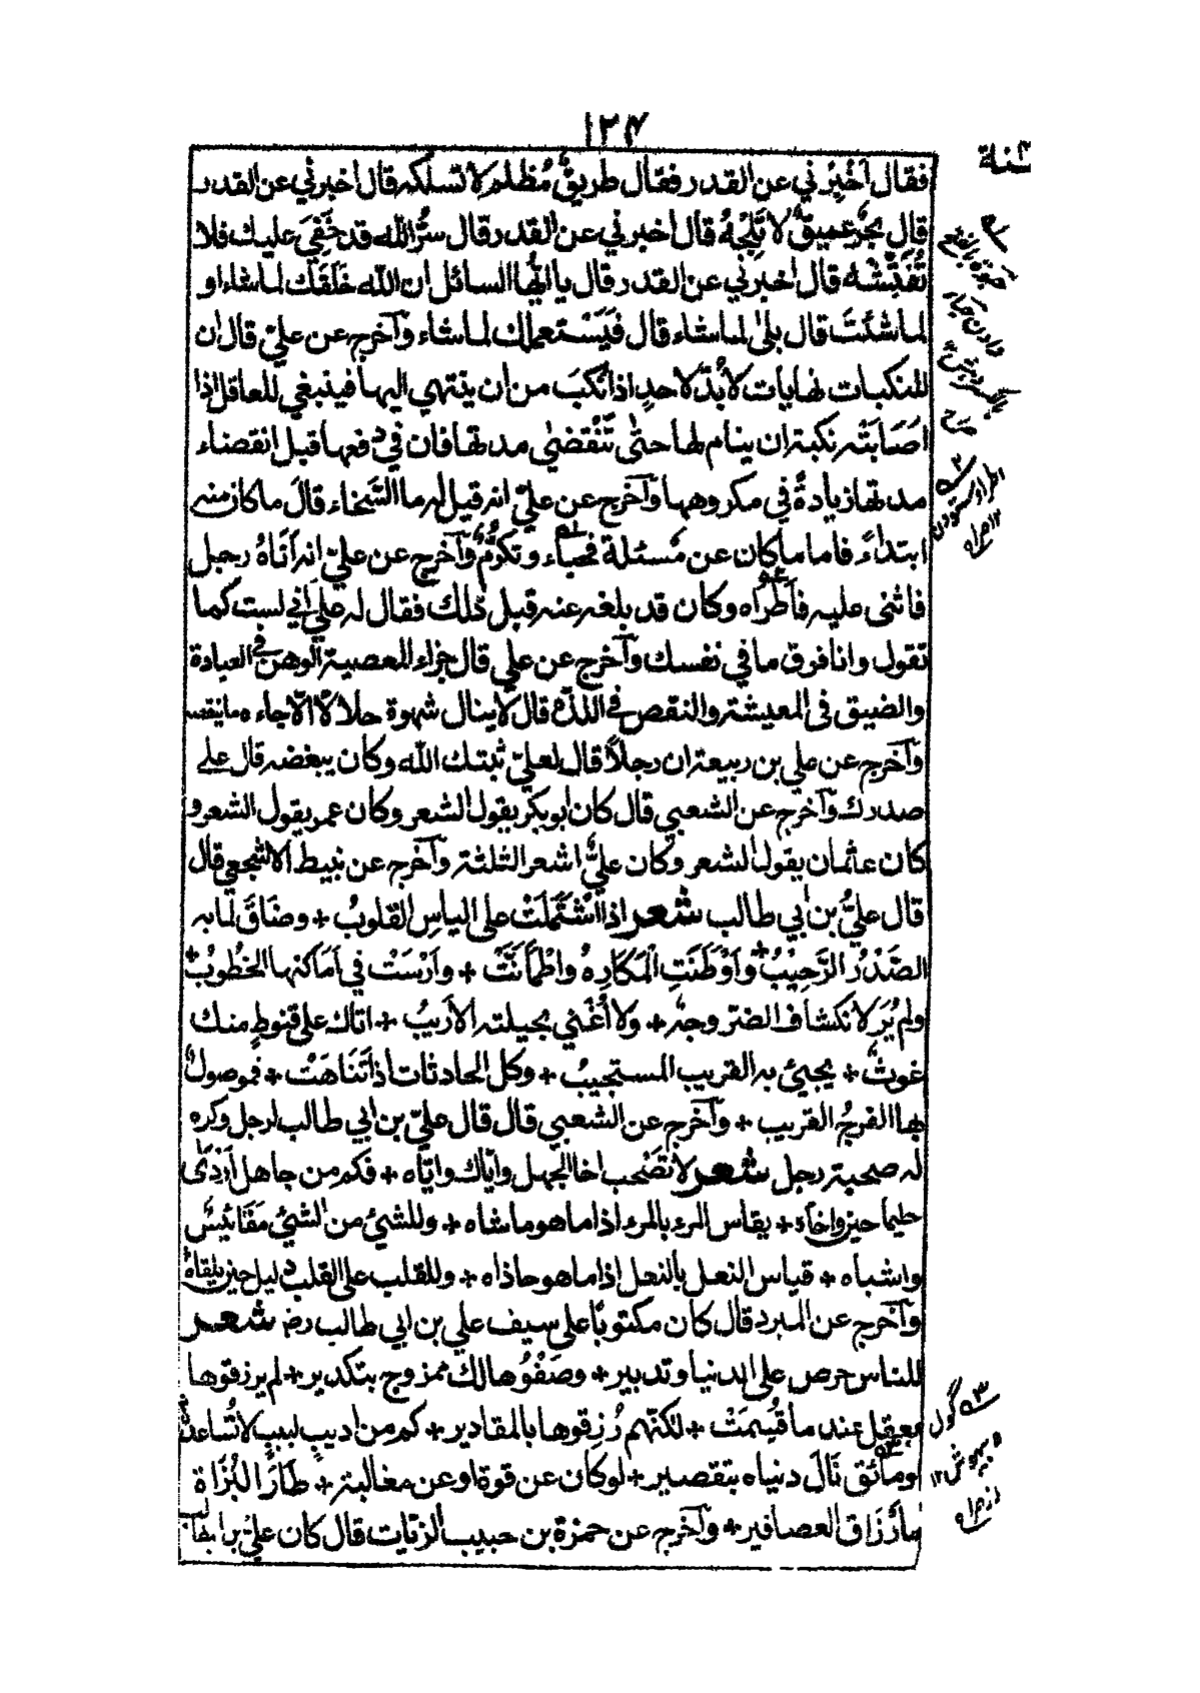 ١٢٧
فقال أَخْبِرْني عن القدر فقال طريقٌ مُظلم لا تسلكه قال اخبرني عن القدر
قال بحرٌ عميقٌ لا تَلِجْهُ قال اخبرني عن القدر قال سرُّ الله قد خَفِيَ عليك فلا
تُفَتِّشْه قال اخبرني عن القدر قال يا ايُّها السائل ان الله خَلَقَك لما شاء او
لما شئتَ قال بلى لما شاء قال فيَسْتعملك لما شاء وآخرج عن عليّ قال ان
للنكبات نهايات لا بُدّ لاحدٍ اذا نُكِبَ من ان ينتهي اليها فينبغي للعاقل اذا
اصَابَتْه نكبة ان ينام لها حتى تَنْقضي مدتها فان في دفعها قبل انقضاء
مدتها زيادةً في مكروهها وآخرج عن عليّ انه قيل له ما السَّخاء قالَ ما كان منه
ابتداءً فاما ما كان عن مَسْئلة فحياء وتكرُّم وآخرج عن عليّ انه اَتَاهُ رجل
فاثنى عليه فاَطْراه وكان قد بلغه عنه قبل ذلك فقال له علي اني لست كما
تقول وانا فوق ما في نفسك وآخرج عن علي قال جزاء المعصية الوهن في العبادة
والضيق في المعيشة والنقص في اللذة قال لا ينال شهوة حلالًا الّا جاءه ما ينقصه
وآخرج عن علي بن ربيعة ان رجلاً قال لعليّ ثبتك الله وكان يبغضه قال على
صدرك وآخرج عن الشعبي قال كان ابو بكر يقول الشعر وكان عمر يقول الشعر و
كان عثمان يقول الشعر وكان عليٌّ اشعر الثلثة وآخرج عن نبيط الاشجعي قال
قال عليُّ بن ابي طالب شعر اذا اشْتَمَلَتْ على الياسِ القلوبُ + وضَاقَ لما به
الصَّدْرُ الرَّحِيْبُ + وَاَوْطَنَتِ الْمَكَارِهُ واطْمَأَنَّتْ + واَرْسَتْ في اَمَاكنها الخُطُوبُ +
ولم يُرَ لانكشاف الضر وجهٌ + ولا أغْنٰي بحيلته الاَرِيبُ + اتاك على قنوطٍ منك
غوثٌ + يجيئ به القريب المستجيبُ + وكل الحادثات اذا تَنَاهَتْ + فموصولٌ
بها الفرجُ القريب + وآخرج عن الشعبي قال قال عليّ بن ابي طالب لرجل وكره
له صحبة رجل شعر لا تَصْحب اخا الجهل واِيّاك واِيّاه + فكم من جاهل اَرْدَىٰ
حليماً حين واخاه + يقاس المرء بالمرء اذا ما هو ماشاه + وللشئ من الشئ مَقَائيسٌ
واشباه + قياس النعل بالنعل اذا ما هو حاذاه + وللقلب على القلب دليل حين يلقاه
وآخرج عن المبرد قال كان مكتوبًا على سيف علي بن ابي طالب رضـ شعر
للناس حرص على الدنيا وتدبير + وصَفْوُها لك ممزوج بتكدير + لم يرزقوها
بعقل عند ما قُسِمَتْ + لكنّهم رُزِقوها بالمقادير + كم من اديبٍ لبيبٍ لا تُساعدهُ
ومائق نَالَ دنياه بتقصير + لو كان عن قوة او عن مغالبة + طَارَ البُزَاة
بأَرْزَاق العصافير + وآخرج عن حمزة بن حبيب الزيات قال كان علي بن ابي طالب